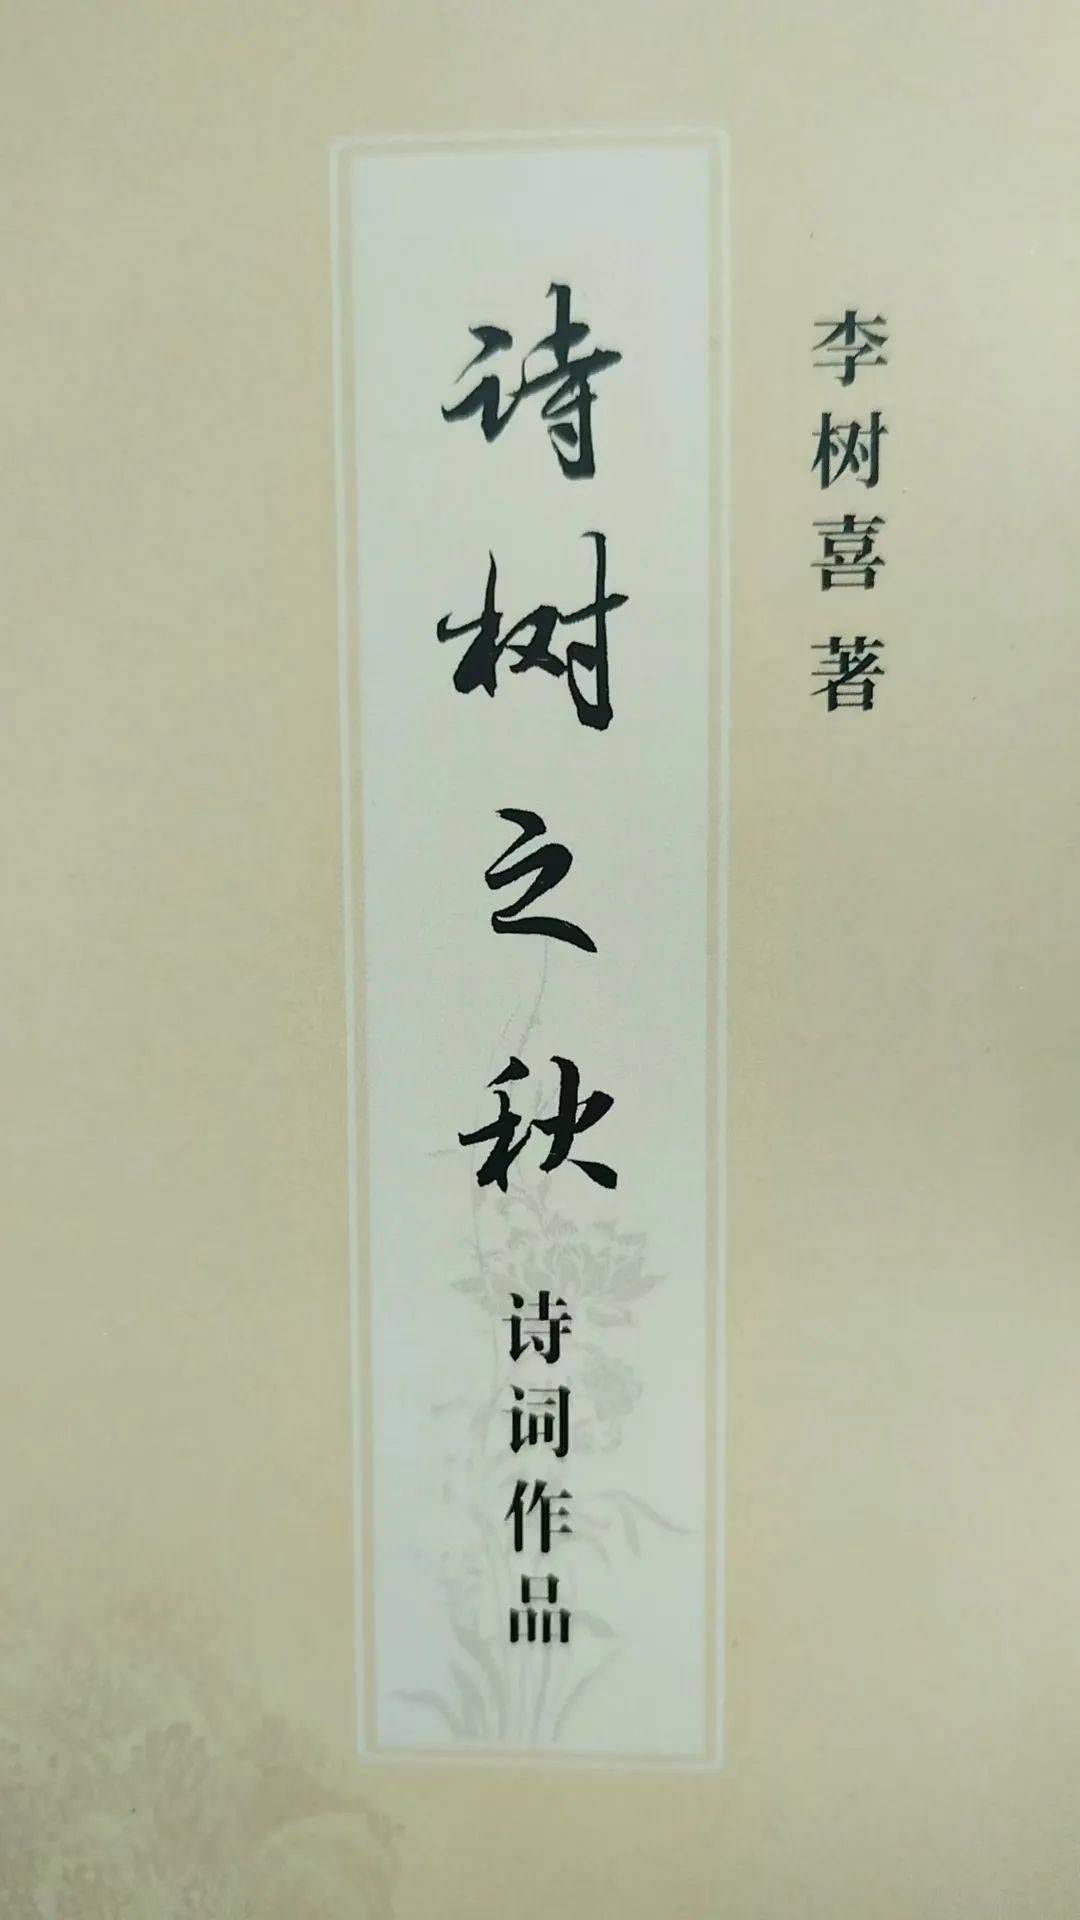 李树喜 著
诗树之秋
诗词作品